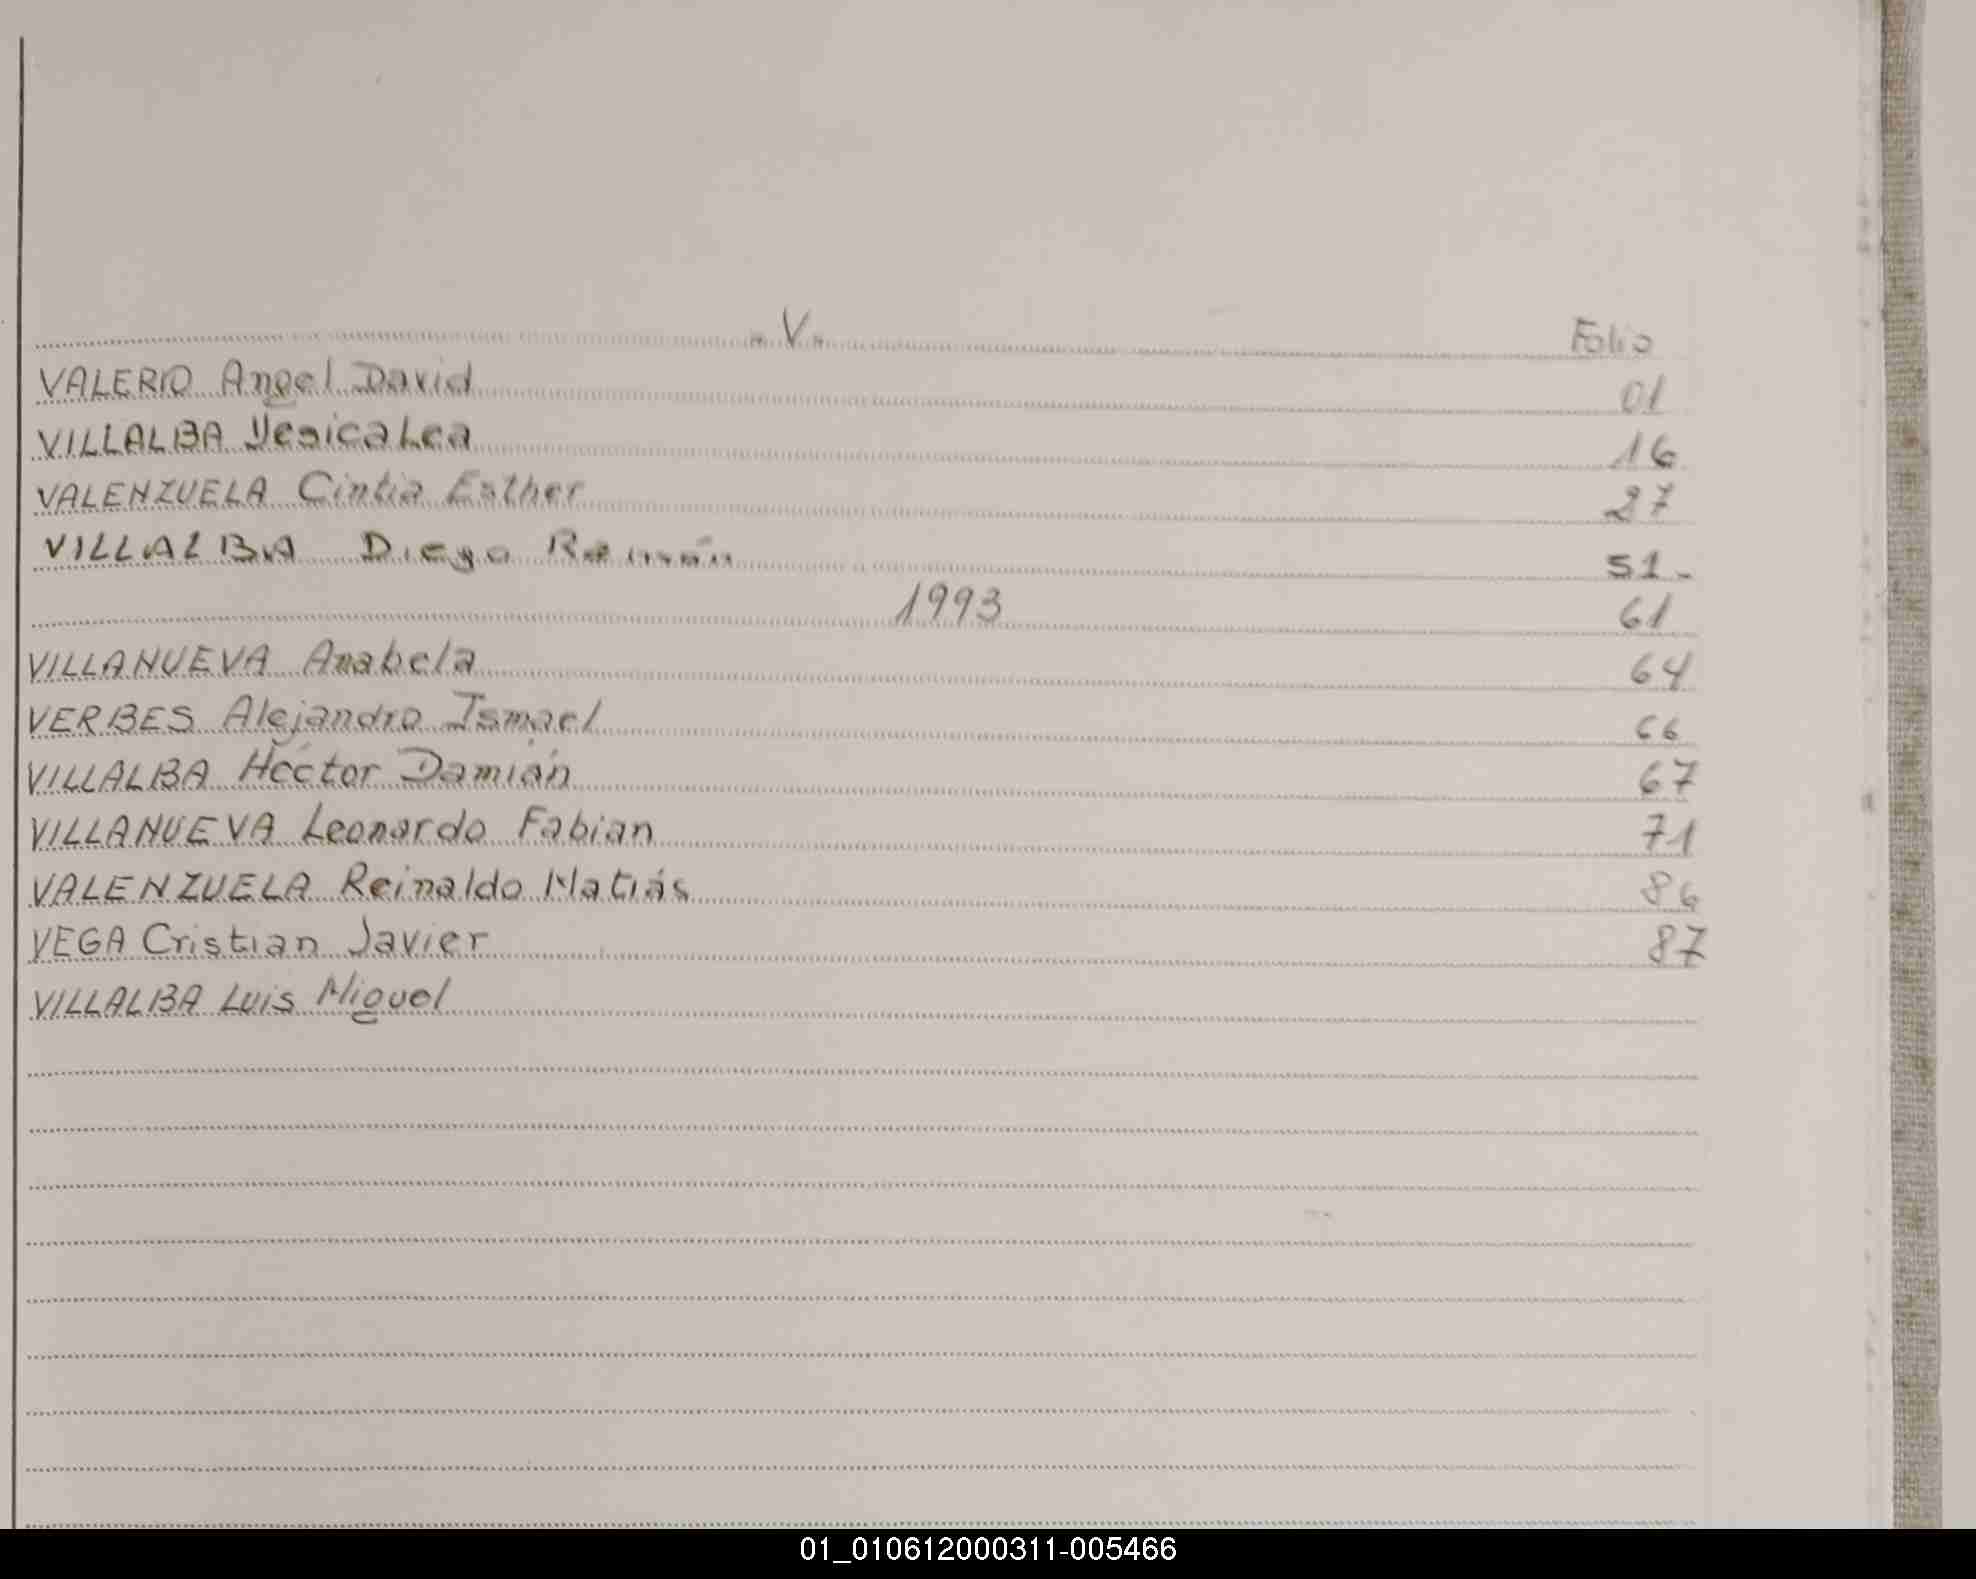 . V .  Folio
VALERO Angel David 01
VILLALBA Yesica Lea 16
VALENZUELA Cintia Esther 27
VILLALBA Diego Ramón 51 -
1993 61
VILLANUEVA Anabela 64
VERBES Alejandro Ismael 66
VILLALBA Héctor Damián 67
VILLANUEVA Leonardo Fabian 71
VALENZUELA Reinaldo Matiás 86
VEGA Cristian Javier 87
VILLALBA Luis Miguel
01_010612000311-005466